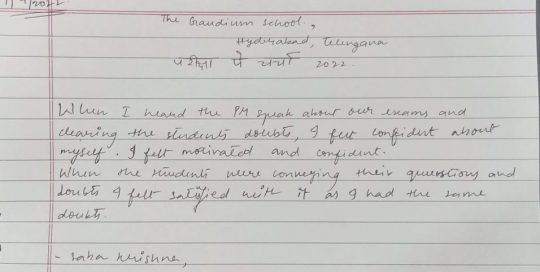 The Gaudium School.,
Hyderabad, Telangana
परीक्षा पे चर्चा 2022.
When I heard the PM speak about our exams and
clearing the students doubts, I felt confident about
myself. I felt motivated and confident.
When the students were conveying their questions and
doubts I felt satisfied with it as I had the same
doubts.
- Krishna,